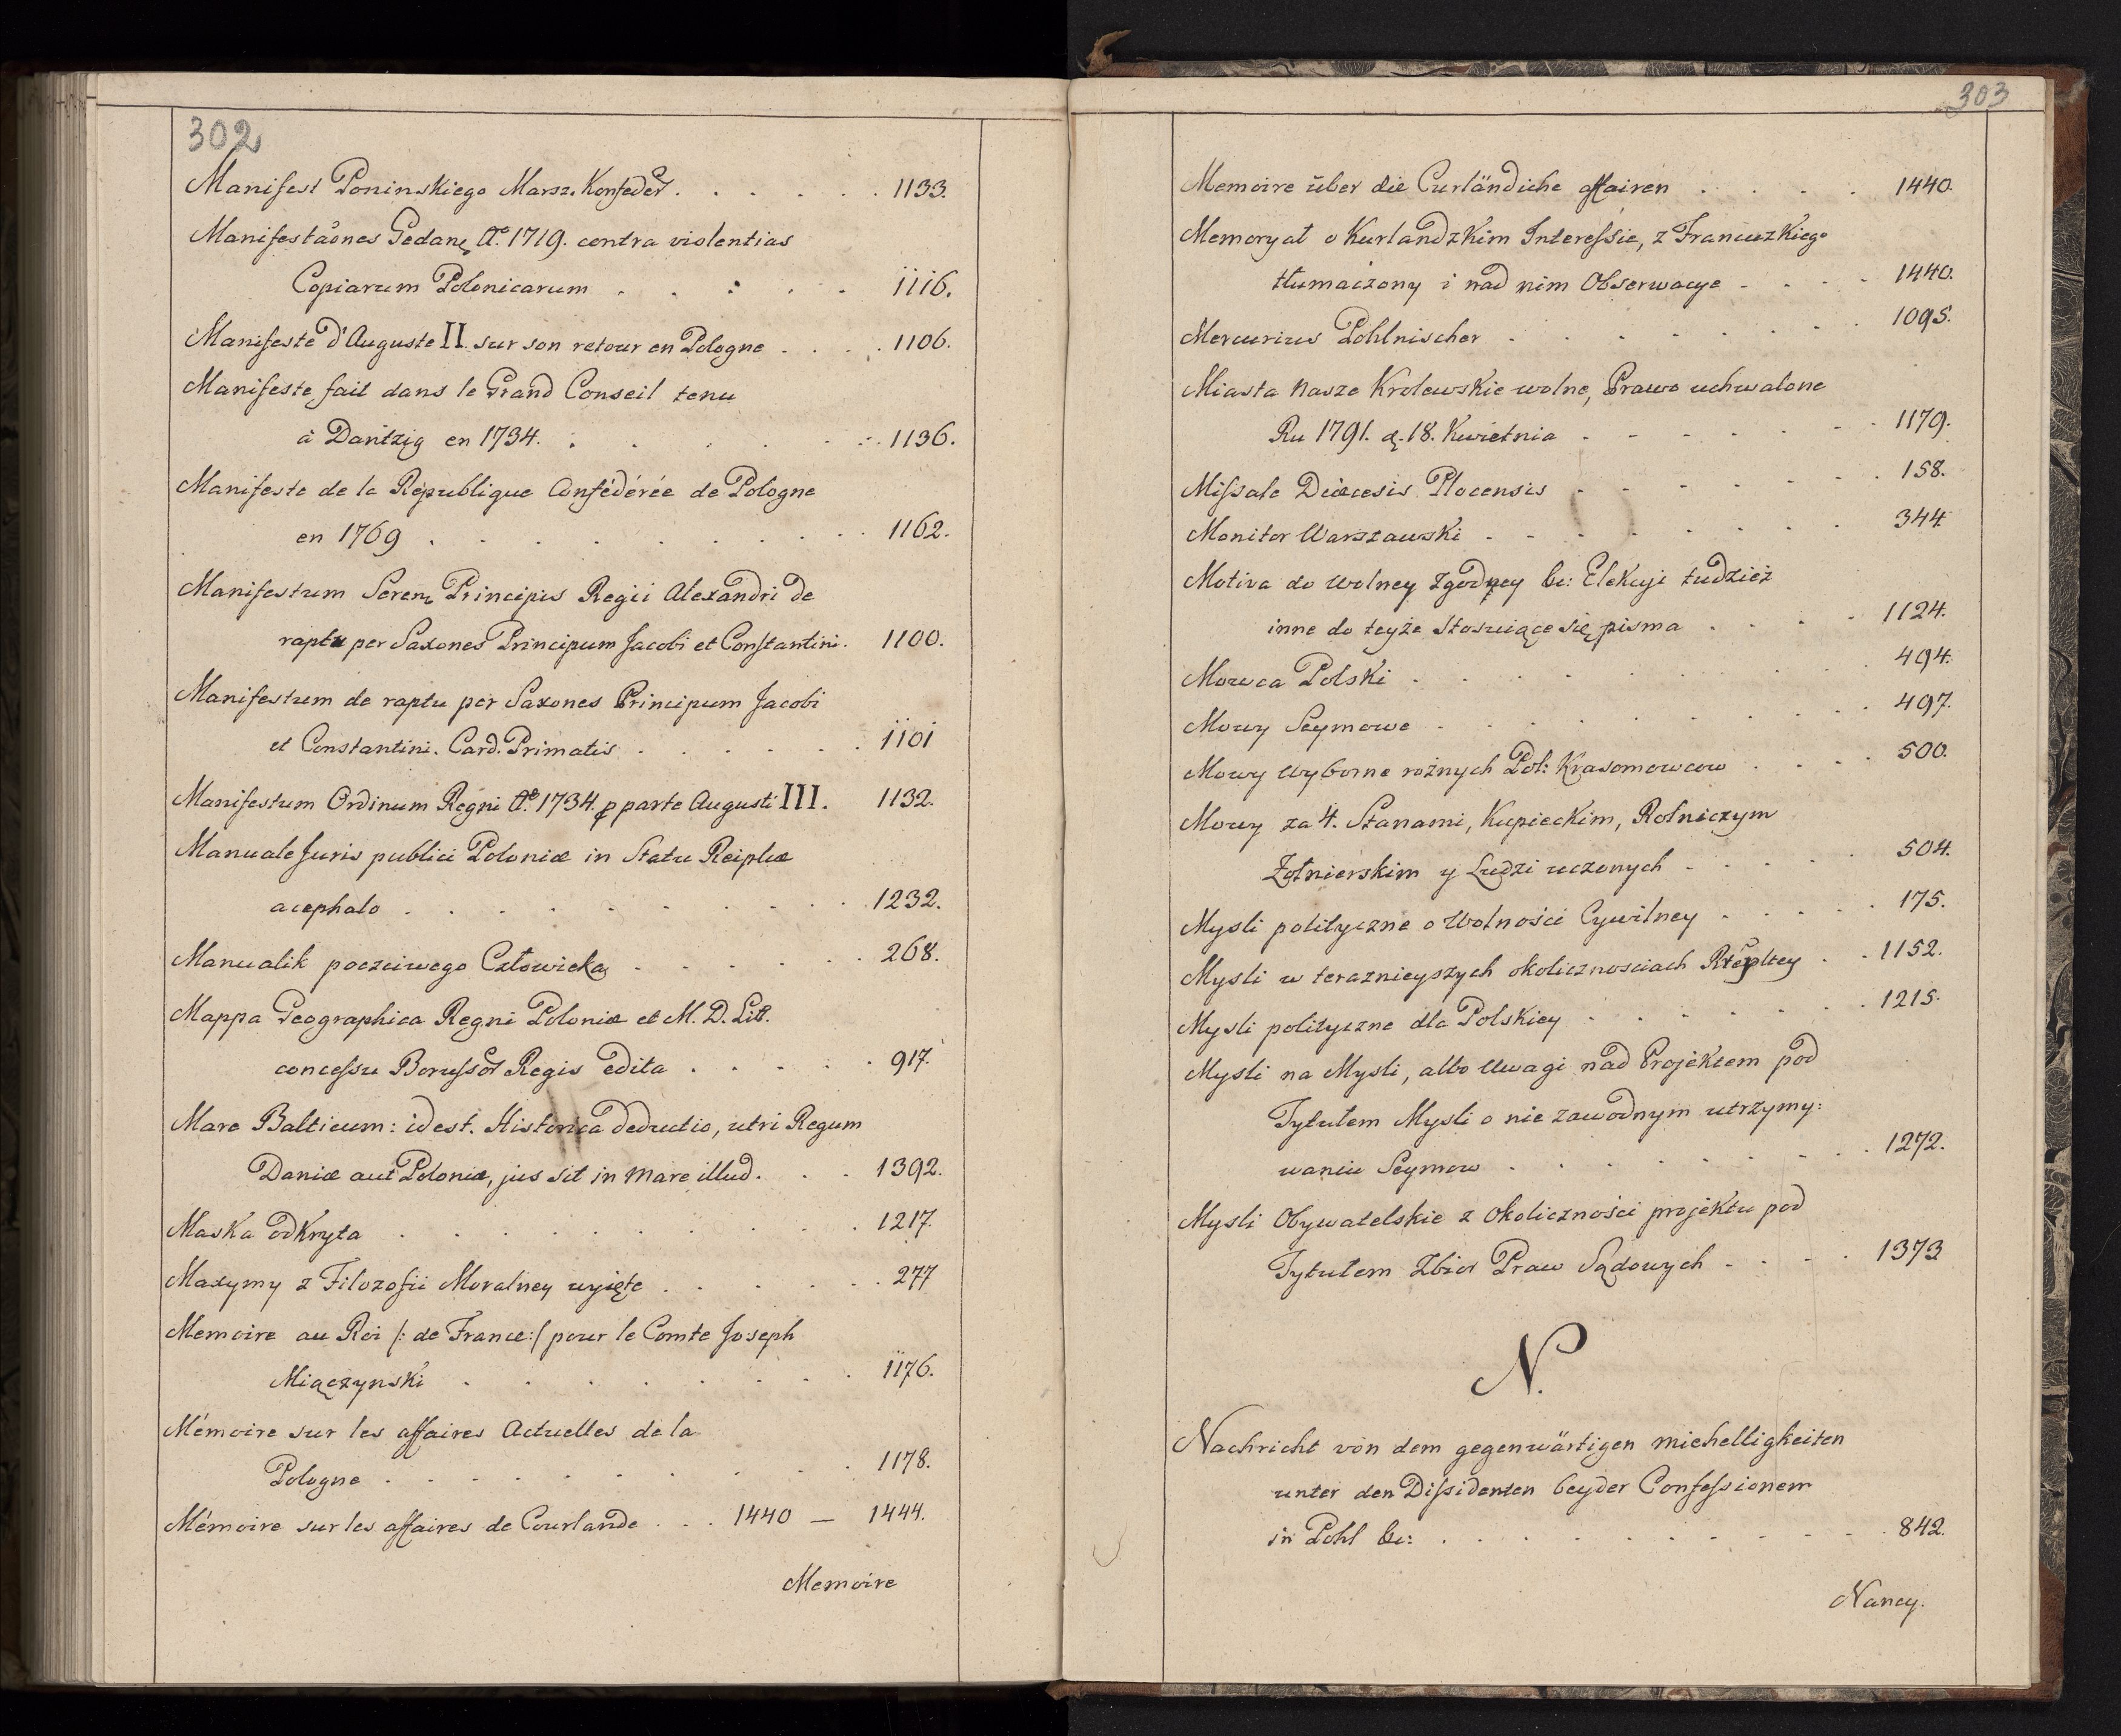 302
Manifest Poninskiego Marsz. Konfeder. . . . . . 1133.
Manifestaōnes Gedanę Aº. 1719. contra violentias
Copiarum Polonicarum . . . . . 1116.
Manifeste d'Auguste II sur son retour en Pologne . . . . 1106.
Manifeste fait dans le Grand Conseil tenu
à Dantzig en 1734. . . . . . 1136.
Manifeste de la République Confédérée de Pologne
en 1769 . . . . . . . . . 1162.
Manifestum Seren. Principis Regii Alexandri de
raptu per Saxones Principum Jacobi et Constantini. 1100.
Manifestum de raptu per Saxones Principum Jacobi
et Constantini. Card. Primatis . . . . . . 1101
Manifestum Ordinum Regni Aº. 1734. p parte Augusti III. 1132.
Manuale Juris publici Poloniæ in Statu Reiplicæ
acephalo . . . . . . . . . . 1232.
Manualik poczciwego Człowieka . . . . . . 268.
Mappa Geographica Regni Poloniæ et M. D. Litt.
concessu Borussor Regis edita . . . . . 917.
Mare Balticum: idest. Historica deductio, utri Regum
Daniæ aut Poloniæ, jus sit in mare illud. . . 1392.
Maska odkryta . . . . . . . . 1217.
Maxymy z Filozofii Moralney wyięte . . . . . 277
Memoire au Roi /: de France:/ pour le Comte Joseph
Miączynski . . . . . . . . 1176.
Mémoire sur les affaires Actuelles de la
Pologne . . . . . . . . . 1178.
Mémoire sur les affaires de Courlande . . . 1440 — 1444.
Memoire
303
Memoire über die Curländiche affairen . . . . . 1440.
Memoryał o Kurlandzkim Interessie, z Francuzkiego
tłumaczony i nad nim Obserwacye . . . . 1440.
Mercurius Pohlnischer . . . . . . . 1095.
Miasta Nasze Krolewskie wolne, Prawo uchwalone
Ru 1791. d. 18. Kwietnia . . . . . . . 1179.
Missale Diæcesis Plocensis . . . . . . . 158.
Monitor Warszawski . . . . . . . 344
Motiva do Wolney Zgodney &c: Elekcyi tudzież
inne do teyże Stosuiące się pisma . . . . 1124.
Mowca Polski . . . . . . . . 494.
Mowy Seymowe . . . . . . . . 497.
Mowy Wyborne rożnych Pol: Krasomowcow . . . . 500.
Mowy za 4. Stanami, Kupieckim, Rolniczym
Żołnierskim y Ludzi uczonych . . . . . 504.
Mysli polityczne o Wolności Cywilney . . . . . 175.
Mysli w teraznieyszych okolicznosciach Rzeplltey . . 1152.
Mysli polityczne dla Polskiey . . . . . . 1215.
Mysli na Mysli, albo Uwagi nad Projektem pod
Tytułem Mysli o nie zawodnym utrzymy:
waniu Seymow . . . . . . . . 1272.
Mysli Obywatelskie z Okoliczności projektu pod
Tytułem Zbior Praw Sądowych . . . . 1373
N.
Nachricht von dem gegenwärtigen miehelligkeiten
unter den Dissidenten beyder Confessionem
in Pohl &c: . . . . . . . . . . 842.
Nancy.